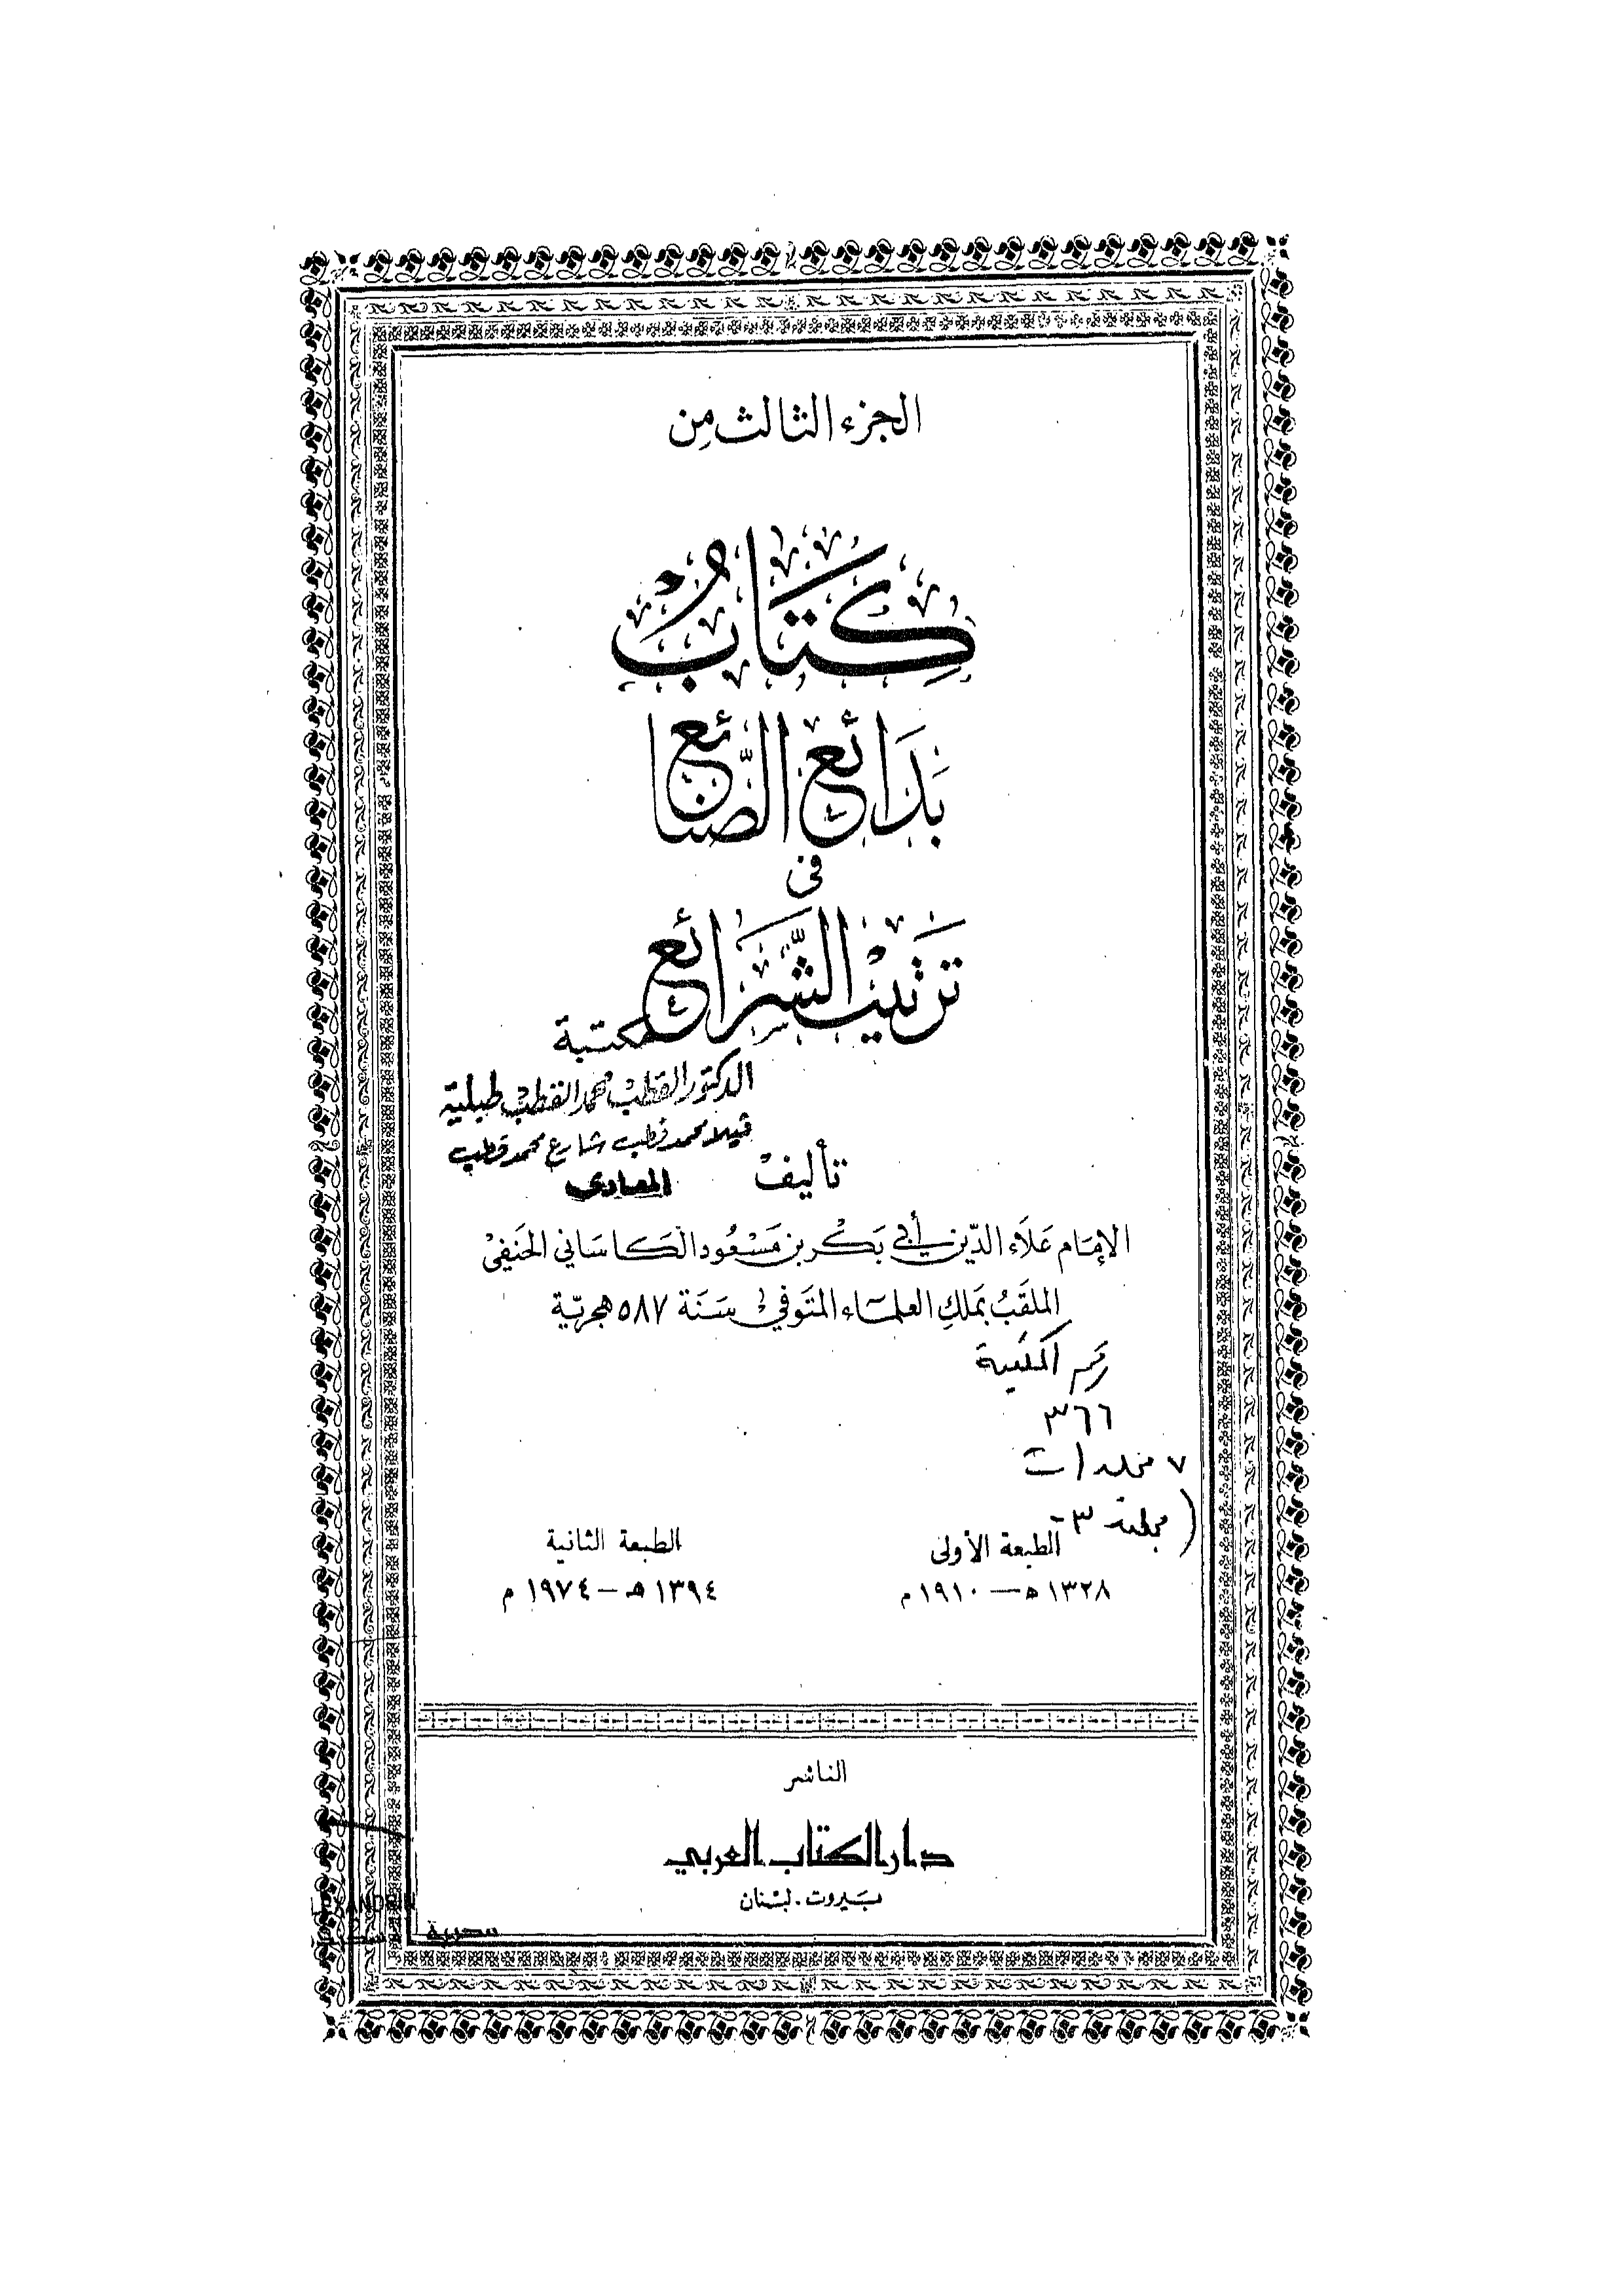 الجزء الثالث من
كتاب
بدائع الصنائع
في
ترتيب الشرائع
مكتبة
الدكتور القطب محمد القطب طبلية
فيلا محمد قطب شارع محمد قطب
المعادى
تأليف
الإمام علاء الدين أبي بكر بن مسعود الكاساني الحنفي
الملقب بملك العلماء المتوفى سنة ٥٨٧ هجرية
رقم المكتبة
٣٦٦
٧ مجلدات
الطبعة الأولى
١٣٢٨ هـ — ١٩١٠ م
الطبعة الثانية
١٣٩٤ هـ — ١٩٧٤ م
الناشر
دار الكتاب العربي
بيروت - لبنان